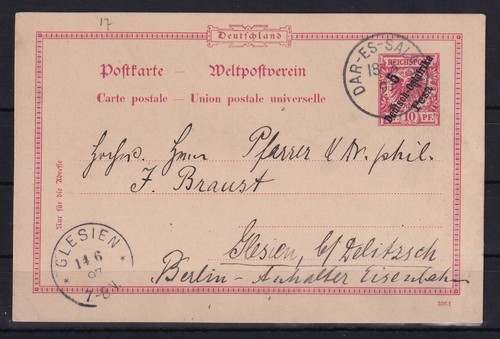 17
Deutschland
Postkarte — Weltpostverein
Carte postale — Union postale universelle
DAR-ES-SAL
18
REICHSPOST
5
Deutsch-Ostafrika
Pesa
10 PF.
Nur für die Adresse
Hochw. Herrn Pfarrer u. Dr. phil.
F. Braust
GLESIEN
14 6
97
7-8
Glesien, b/ Delitzsch
Berlin-Anhalter Eisenbahn